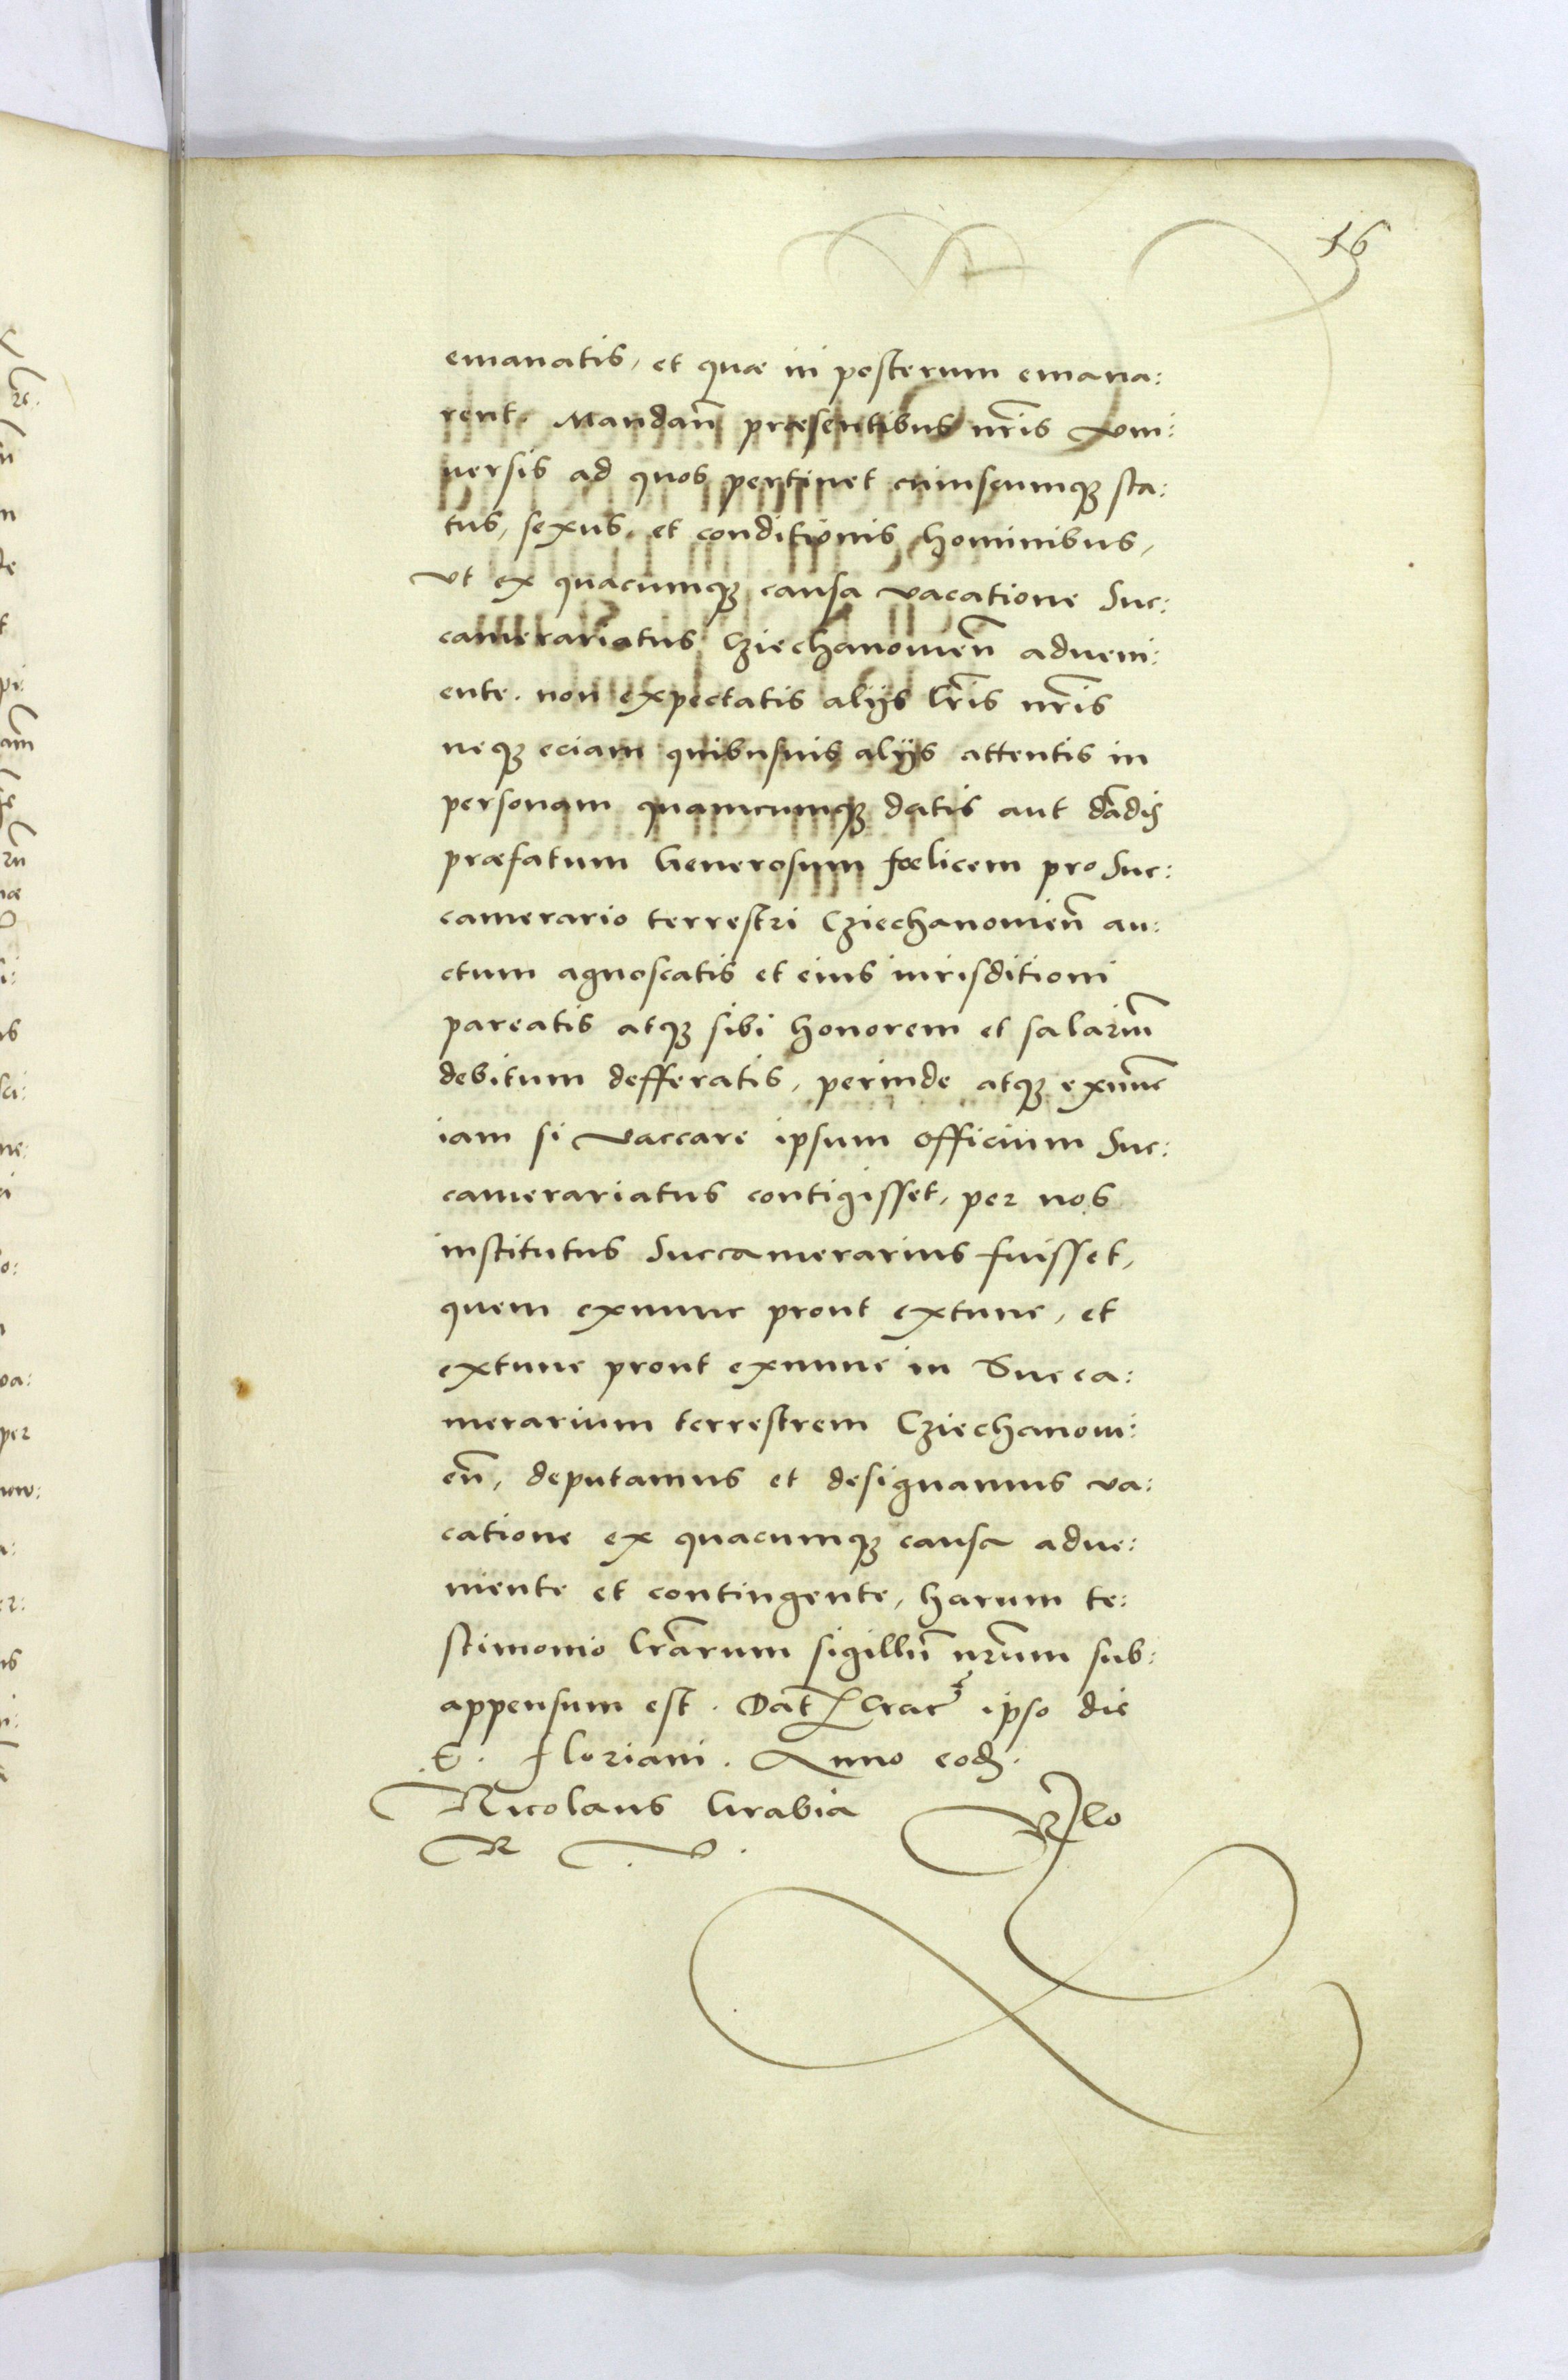 16
emanatis, et quæ in posterum emana:
rent. Mandañ præsentibus nr̃is vni:
uersis ad quos pertinet cuiuscumqȝ sta:
tus, sexus, et conditionis hominibus,
vt ex quacumqȝ causa vacatione Suc:
camerariatus Cziechanouieñ adueni:
ente. non expectatis alijs lr̃is nr̃is
neqȝ eciam quibusuis alijs attentis in
personam quamcumqȝ datis aut dãdis
præfatum Generosum fœlicem pro Suc:
camerario terrestri Cziechanouieñ au:
ctum agnoscatis et eius iurisditioni
pareatis atqȝ sibi honorem et salariũ
debitum defferatis, perinde atqȝ exnũc
iam si vaccare ipsum officium Suc:
camerariatus contigisset, per nos
institutus Succamerarius fuisset,
quem exnunc prout extunc, et
extunc prout exnunc in Succa:
merarium terrestrem Cziechanoui:
eñ, deputamus et designamus va:
catione ex quacumqȝ causa adue:
niente et contingente, harum te:
stimonio lr̃arum sigillũ nr̃um sub:
appensum est. Dat̃ Crac ipso die
S. Floriani. Anno eod.
Nicolaus Grabia
R V.